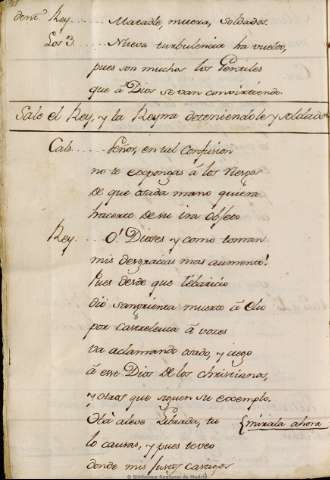 dentº Rey.... Matadle, muera, Soldados.
Los 3.... Nueva turbulencia ha vuelto,
pues son muchos los Gentiles
que à Dios se van convirtiendo.
Sale el Rey, y la Reyna deteniendole y soldados
Cal.... Señor, en tal confusion
no te expongas à los riesgos
de que osada mano quiera
hacerte de su ira objeto
Rey... O! Dioses y como toman
mis desgracias mas aumento!
Pues desde que
dió sangrienta muerte à Elio
por Castreleuca à voces
va aclamando osado, y ciego
à ese Dios de los christianos,
y otros que siguen su exemplo.
Ha aleve Librada, tu {mirala ahora
lo causas, y pues tu veo
donde mis justos castigos
© Biblioteca Regional de Madrid